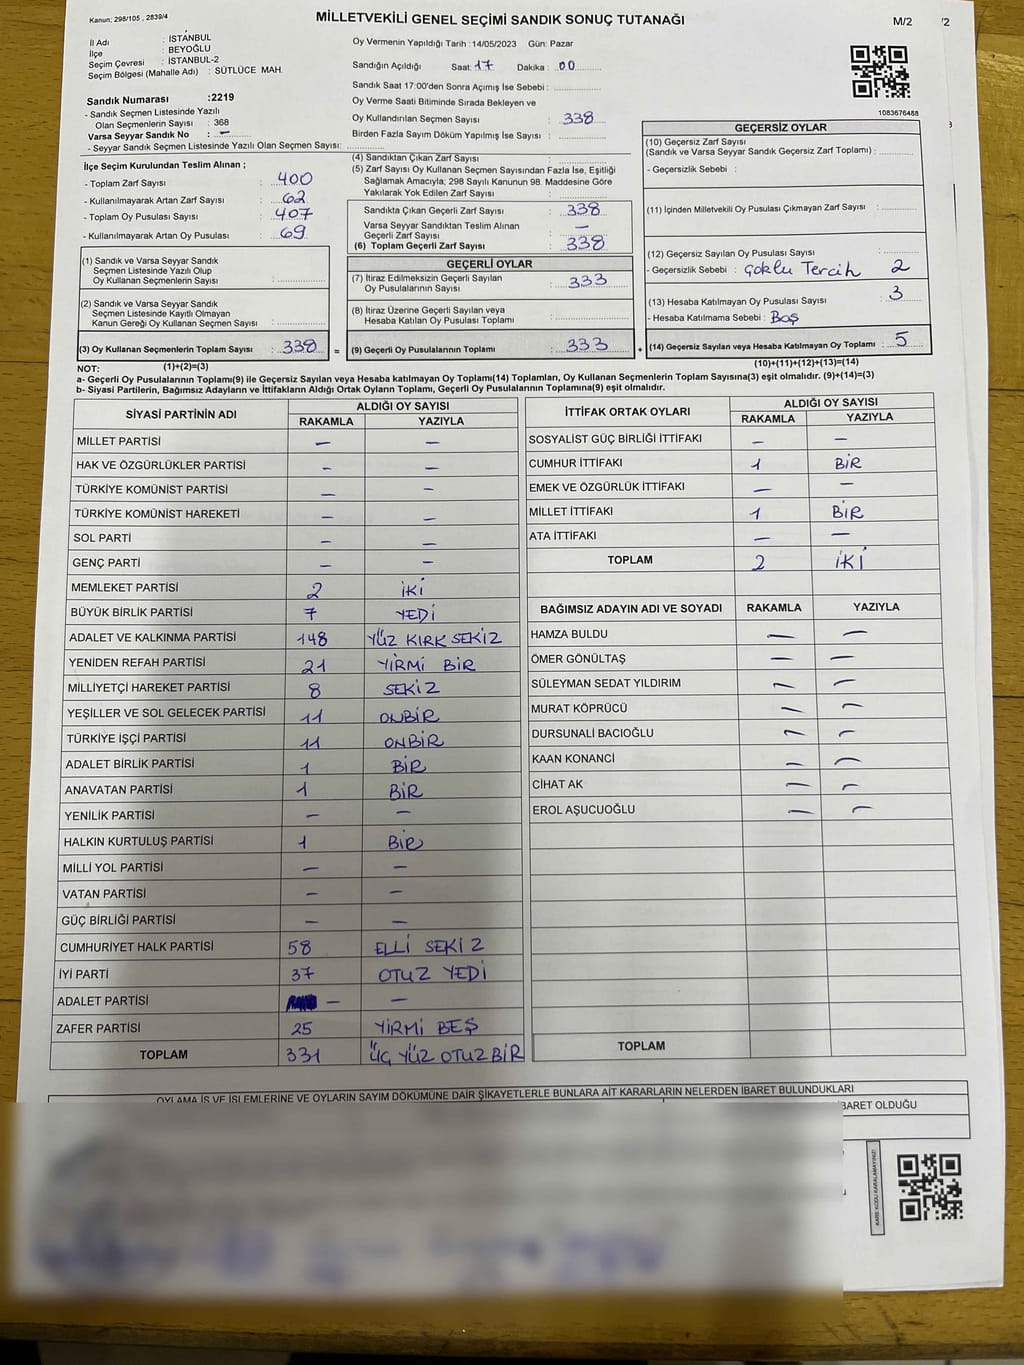 Kanun; 298/105 , 2839/4
MİLLETVEKİLİ GENEL SEÇİMİ SANDIK SONUÇ TUTANAĞI
M/2
'/2
İl Adı : İSTANBUL
İlçe : BEYOĞLU
Seçim Çevresi : İSTANBUL-2
Seçim Bölgesi (Mahalle Adı) : SÜTLÜCE MAH.
Sandık Numarası :2219
- Sandık Seçmen Listesinde Yazılı
Olan Seçmenlerin Sayısı : 368
Varsa Seyyar Sandık No : —
- Seyyar Sandık Seçmen Listesinde Yazılı Olan Seçmen Sayısı:
Oy Vermenin Yapıldığı Tarih :14/05/2023 Gün: Pazar
Sandığın Açıldığı Saat: 17 Dakika : 00
Sandık Saat 17:00'den Sonra Açımış İse Sebebi :
Oy Verme Saati Bitiminde Sırada Bekleyen ve
Oy Kullandırılan Seçmen Sayısı : 338
Birden Fazla Sayım Döküm Yapılmış İse Sayısı :
1083676488
İlçe Seçim Kurulundan Teslim Alınan ;
- Toplam Zarf Sayısı : 400
- Kullanılmayarak Artan Zarf Sayısı : 62
- Toplam Oy Pusulası Sayısı : 407
- Kullanılmayarak Artan Oy Pusulası : 69
(1) Sandık ve Varsa Seyyar Sandık
Seçmen Listesinde Yazılı Olup
Oy Kullanan Seçmenlerin Sayısı :
(2) Sandık ve Varsa Seyyar Sandık
Seçmen Listesinde Kayıtlı Olmayan
Kanun Gereği Oy Kullanan Seçmen Sayısı :
(3) Oy Kullanan Seçmenlerin Toplam Sayısı : 338 =
(4) Sandıktan Çıkan Zarf Sayısı :
(5) Zarf Sayısı Oy Kullanan Seçmen Sayısından Fazla İse, Eşitliği
Sağlamak Amacıyla; 298 Sayılı Kanunun 98. Maddesine Göre
Yakılarak Yok Edilen Zarf Sayısı :
Sandıkta Çıkan Geçerli Zarf Sayısı : 338
Varsa Seyyar Sandıktan Teslim Alınan
Geçerli Zarf Sayısı : —
(6) Toplam Geçerli Zarf Sayısı : 338
GEÇERLİ OYLAR
(7) İtiraz Edilmeksizin Geçerli Sayılan
Oy Pusulalarının Sayısı : 333
(8) İtiraz Üzerine Geçerli Sayılan veya
Hesaba Katılan Oy Pusulası Toplamı :
(9) Geçerli Oy Pusulalarının Toplamı : 333 +
GEÇERSİZ OYLAR
(10) Geçersiz Zarf Sayısı
(Sandık ve Varsa Seyyar Sandık Geçersiz Zarf Toplamı) :
- Geçersizlik Sebebi :
(11) İçinden Milletvekili Oy Pusulası Çıkmayan Zarf Sayısı :
(12) Geçersiz Sayılan Oy Pusulası Sayısı :
- Geçersizlik Sebebi : Çoklu Tercih 2
(13) Hesaba Katılmayan Oy Pusulası Sayısı : 3
- Hesaba Katılmama Sebebi : Boş
(14) Geçersiz Sayılan veya Hesaba Katılmayan Oy Toplamı : 5
NOT: (1)+(2)=(3)
(10)+(11)+(12)+(13)=(14)
a- Geçerli Oy Pusulalarının Toplamı(9) ile Geçersiz Sayılan veya Hesaba katılmayan Oy Toplamı(14) Toplamları, Oy Kullanan Seçmenlerin Toplam Sayısına(3) eşit olmalıdır. (9)+(14)=(3)
b- Siyasi Partilerin, Bağımsız Adayların ve İttifakların Aldığı Ortak Oyların Toplamı, Geçerli Oy Pusulalarının Toplamına(9) eşit olmalıdır.
SİYASİ PARTİNİN ADI ALDIĞI OY SAYISI
RAKAMLA YAZIYLA
MİLLET PARTİSİ — —
HAK VE ÖZGÜRLÜKLER PARTİSİ — —
TÜRKİYE KOMÜNİST PARTİSİ — —
TÜRKİYE KOMÜNİST HAREKETİ — —
SOL PARTİ — —
GENÇ PARTİ — —
MEMLEKET PARTİSİ 2 İKİ
BÜYÜK BİRLİK PARTİSİ 7 YEDİ
ADALET VE KALKINMA PARTİSİ 148 YÜZ KIRK SEKİZ
YENİDEN REFAH PARTİSİ 21 YİRMİ BİR
MİLLİYETÇİ HAREKET PARTİSİ 8 SEKİZ
YEŞİLLER VE SOL GELECEK PARTİSİ 11 ONBİR
TÜRKİYE İŞÇİ PARTİSİ 11 ONBİR
ADALET BİRLİK PARTİSİ 1 BİR
ANAVATAN PARTİSİ 1 BİR
YENİLİK PARTİSİ — —
HALKIN KURTULUŞ PARTİSİ 1 BİR
MİLLİ YOL PARTİSİ — —
VATAN PARTİSİ — —
GÜÇ BİRLİĞİ PARTİSİ — —
CUMHURİYET HALK PARTİSİ 58 ELLİ SEKİZ
İYİ PARTİ 37 OTUZ YEDİ
ADALET PARTİSİ — —
ZAFER PARTİSİ 25 YİRMİ BEŞ
TOPLAM 331 ÜÇ YÜZ OTUZ BİR
İTTİFAK ORTAK OYLARI ALDIĞI OY SAYISI
RAKAMLA YAZIYLA
SOSYALİST GÜÇ BİRLİĞİ İTTİFAKI — —
CUMHUR İTTİFAKI 1 BİR
EMEK VE ÖZGÜRLÜK İTTİFAKI — —
MİLLET İTTİFAKI 1 BİR
ATA İTTİFAKI — —
TOPLAM 2 İKİ
BAĞIMSIZ ADAYIN ADI VE SOYADI RAKAMLA YAZIYLA
HAMZA BULDU — —
ÖMER GÖNÜLTAŞ — —
SÜLEYMAN SEDAT YILDIRIM — —
MURAT KÖPRÜCÜ — —
DURSUNALİ BACIOĞLU — —
KAAN KONANCİ — —
CİHAT AK — —
EROL AŞUCUOĞLU — —
TOPLAM
OYLAMA İŞ VE İŞLEMLERİNE VE OYLARIN SAYIM DÖKÜMÜNE DAİR ŞİKAYETLERLE BUNLARA AİT KARARLARIN NELERDEN İBARET BULUNDUKLARI
İBARET OLDUĞU
KARE KODU KARALAMAYINIZ!